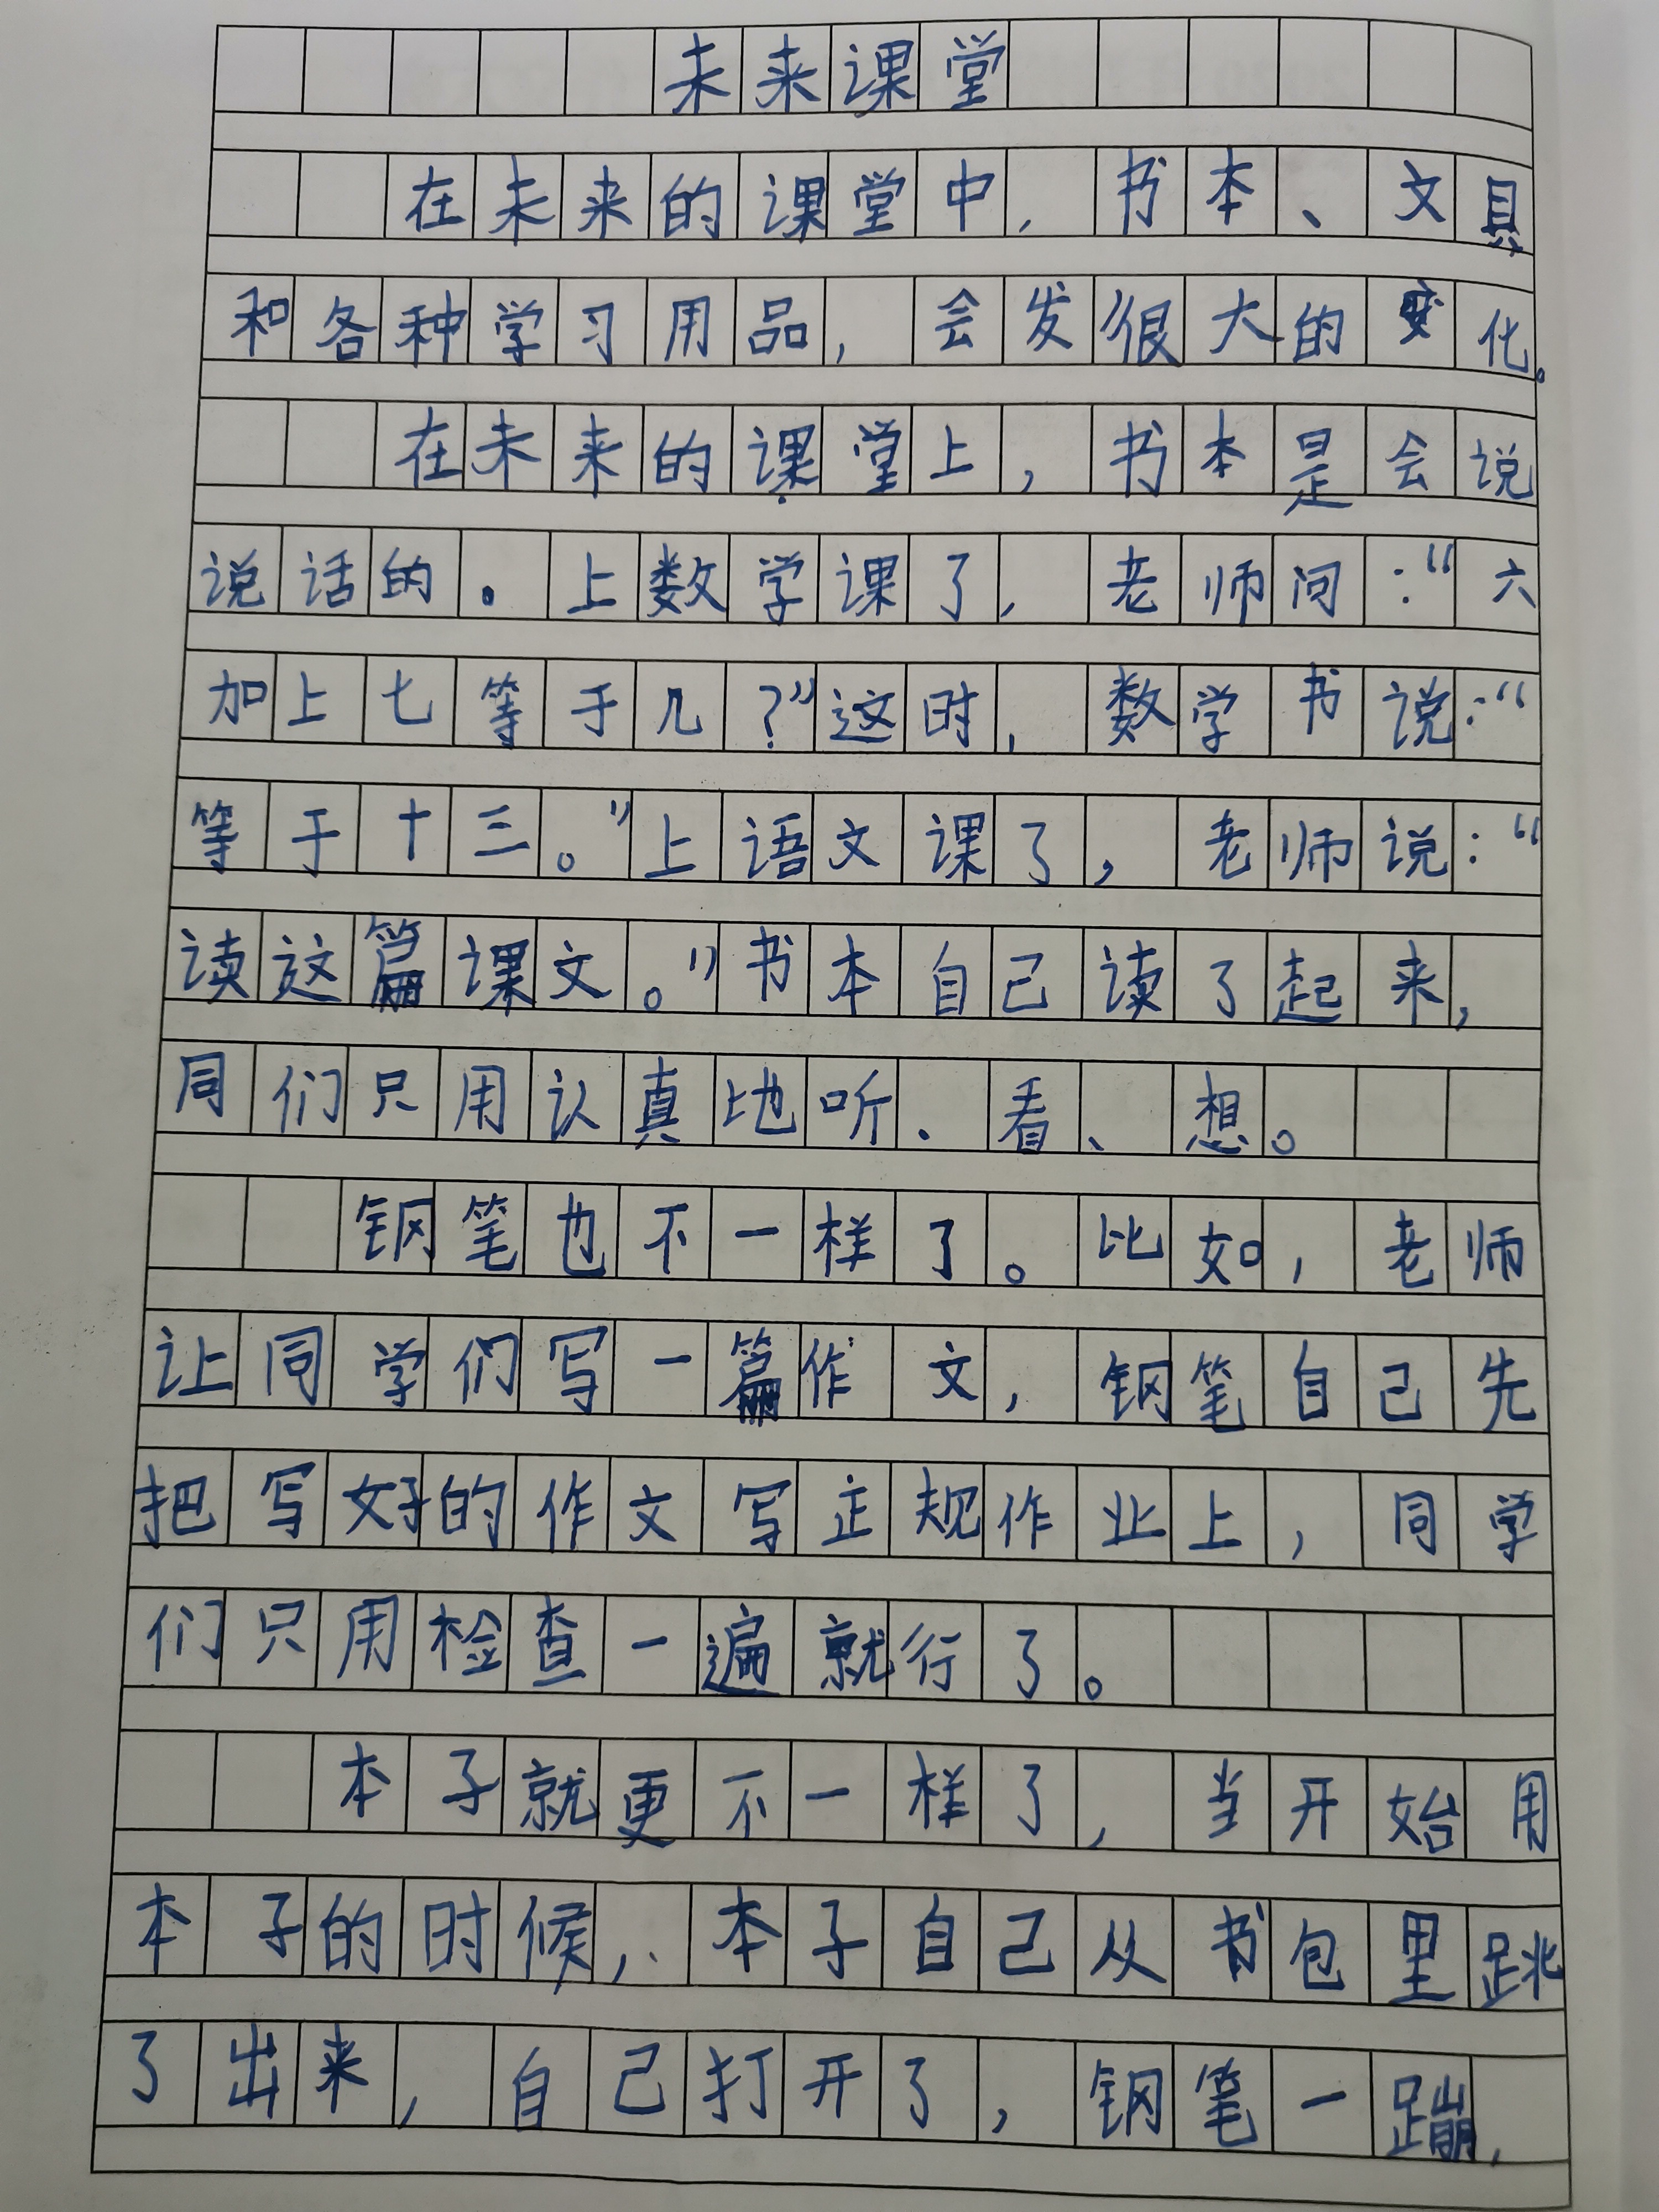 未来课堂
在未来的课堂中,书本、文具
和各种学习用品,会发很大的变化。
在未来的课堂上,书本是会说
说话的。上数学课了,老师问:“六
加上七等于几?”这时,数学书说:“
等于十三。”上语文课了,老师说:“
读这篇课文。”书本自己读了起来,
同们只用认真地听、看、想。
钢笔也不一样了。比如,老师
让同学们写一篇作文,钢笔自己先
把写好的作文写正规作业上,同学
们只用检查一遍就行了。
本子就更不一样了,当开始用
本子的时候,本子自己从书包里跳
了出来,自己打开了,钢笔一蹦,